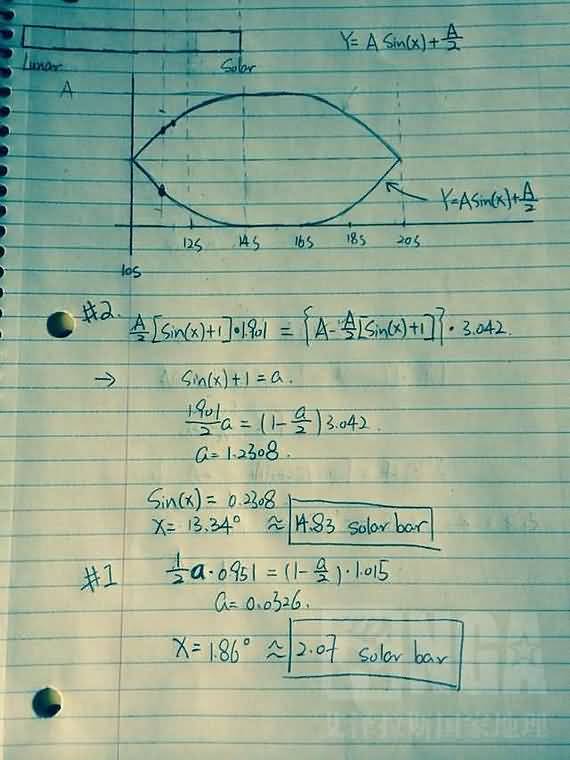 Y = A Sin(x) + A/2
Lunar Solar
A
Y=Asin(x)+A/2
10s 12s 14s 16s 18s 20s
#2. A/2 [sin(x)+1]•1.901 = {A-A/2[Sin(x)+1]}•3.042.
→ Sin(x)+1=a.
1.901/2 a = (1-a/2)3.042.
a=1.2308.
Sin(x)= 0.2308
x= 13.34° ≈ 14.83 solar bar
#1 1/2 a•0.951=(1-a/2)•1.015
a=0.0326.
x=1.86° ≈ 2.07 solar bar
NGA
艾泽拉斯国家地理